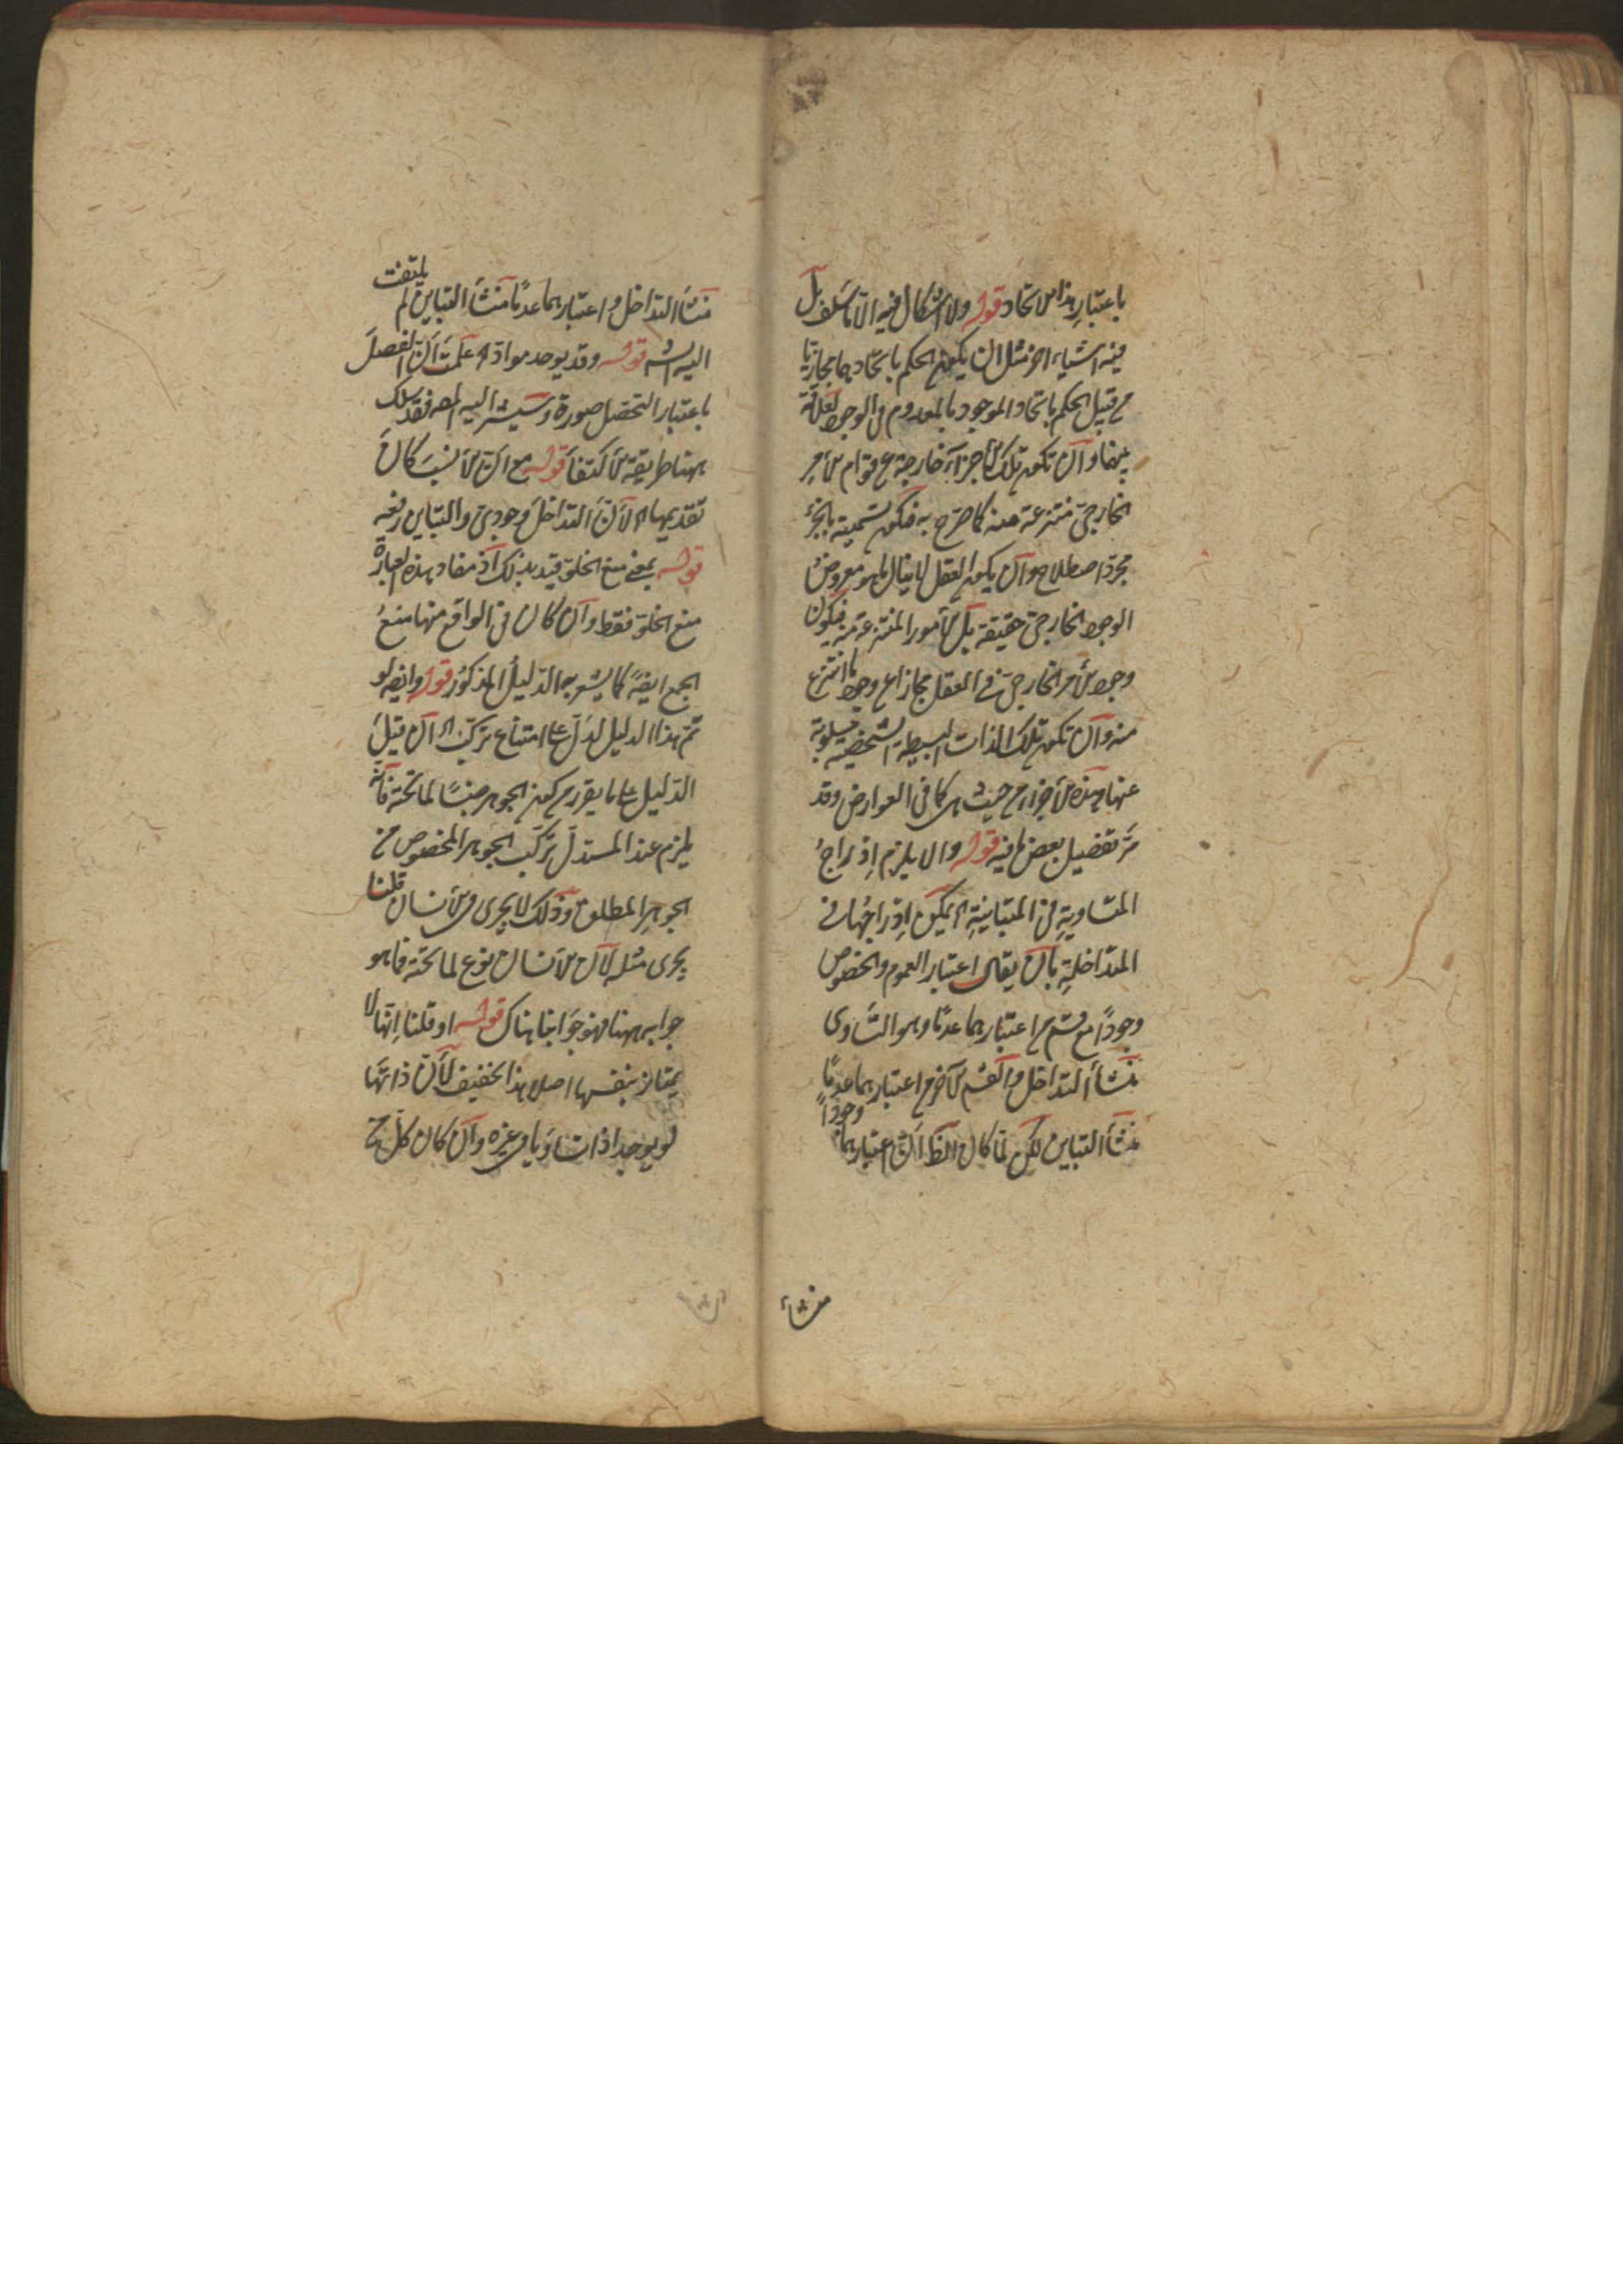 باعتبار هذا الاتحاد قوله ولا اشكال فيه الا ما سلف بل
فيه اشياء اخر مثل ان يكون الحكم باتحادهما مجازيا
من قبيل الحكم باتحاد الموجود بالمعدوم في الوجود لعلاقة
بينهما وان تكون تلك الأجزاء خارجة عن قوام الأمر
الخارجي منتزعة عنه كما صرح به فيكون تسميته بالجزء
مجرد اصطلاح وان يكون العقل لا ينال ما هو معروض
الوجود الخارجي حقيقة بل الأمور المنتزعة منه فيكون
وجود الأمر الخارجي في العقل مجازا عن وجود ما انتزع
منه وان تكون تلك الذات البسيطة الشخصية مسلوبة
عنها هذه الأجزاء من حيث هي كما في العوارض وقد
مر تفصيل بعض ما فيه قوله والا يلزم إدراج
المتساوية في المتباينة اه يمكن إدراجها في
المتداخلة بان يقال اعتبار العموم والخصوص
وجودا مع قسم من اعتبارهما عدما وهو التساوى
منشأ التداخل والقسم الآخر من اعتبارهما عدما
منشأ التباين لكن لما كان الظ ان اعتبارهما وجودا
منشاء
منشأ التداخل واعتبارهما عدما منشأ التباين لم يلتفت
اليه الش قوله وقد يوجد مواده اه علمت ان الفصل
باعتبار التحصل صورة وسيشير اليه المص فقد سلك
ههنا طريقة الأكتفاء قوله مع ان الأنسب كان
تقديمها اه لأن التداخل وجودى والتباين رفعه
قوله بمعنى منع الخلو قيد بذلك اذ مفاد هذه العبارة
منع الخلو فقط وان كان في الواقع منها منع
الجمع ايضا كما يشعر به الدليل المذكور قوله وايضا لو
تم هذا الدليل لدل على امتناع تركب اه ان قيل
الدليل على ما يقرر من كون الجوهر جنسا لما تحته فانه
يلزم عند المستدل تركب الجوهر المخصوص من
الجوهر المطلق وذلك لا يجرى في الأنسان قلنا
يجرى مثله لان الأنسان نوع لما تحته فما هو
جوابه ههنا فهو جوابنا هناك قوله او قلنا انها لا
يمتاز بنفسها اصلا هذا خفيف لأن ذاتها
لو يوجد اذا تساويا في غيره وان كان كل ح